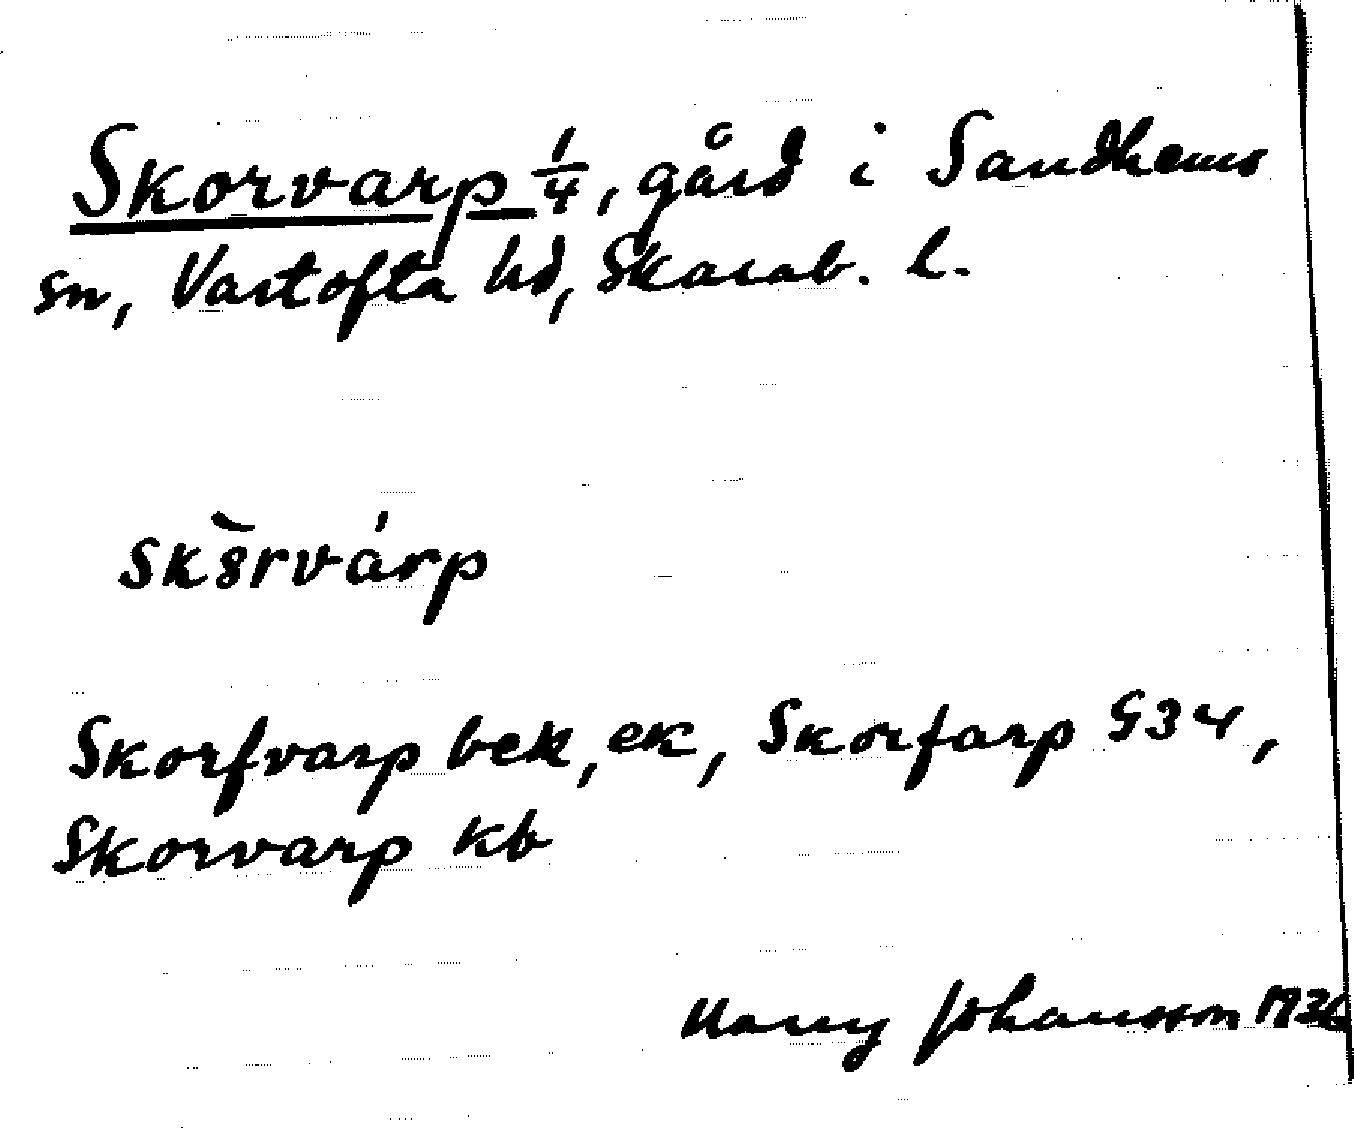 Skorvarp 1/4, gård i Sandhems
sn, Vartofta hd, Skarab. l.
Skorfvarp bek, ek, Skorfarp G34,
Skorvarp kb
Harry Johansson